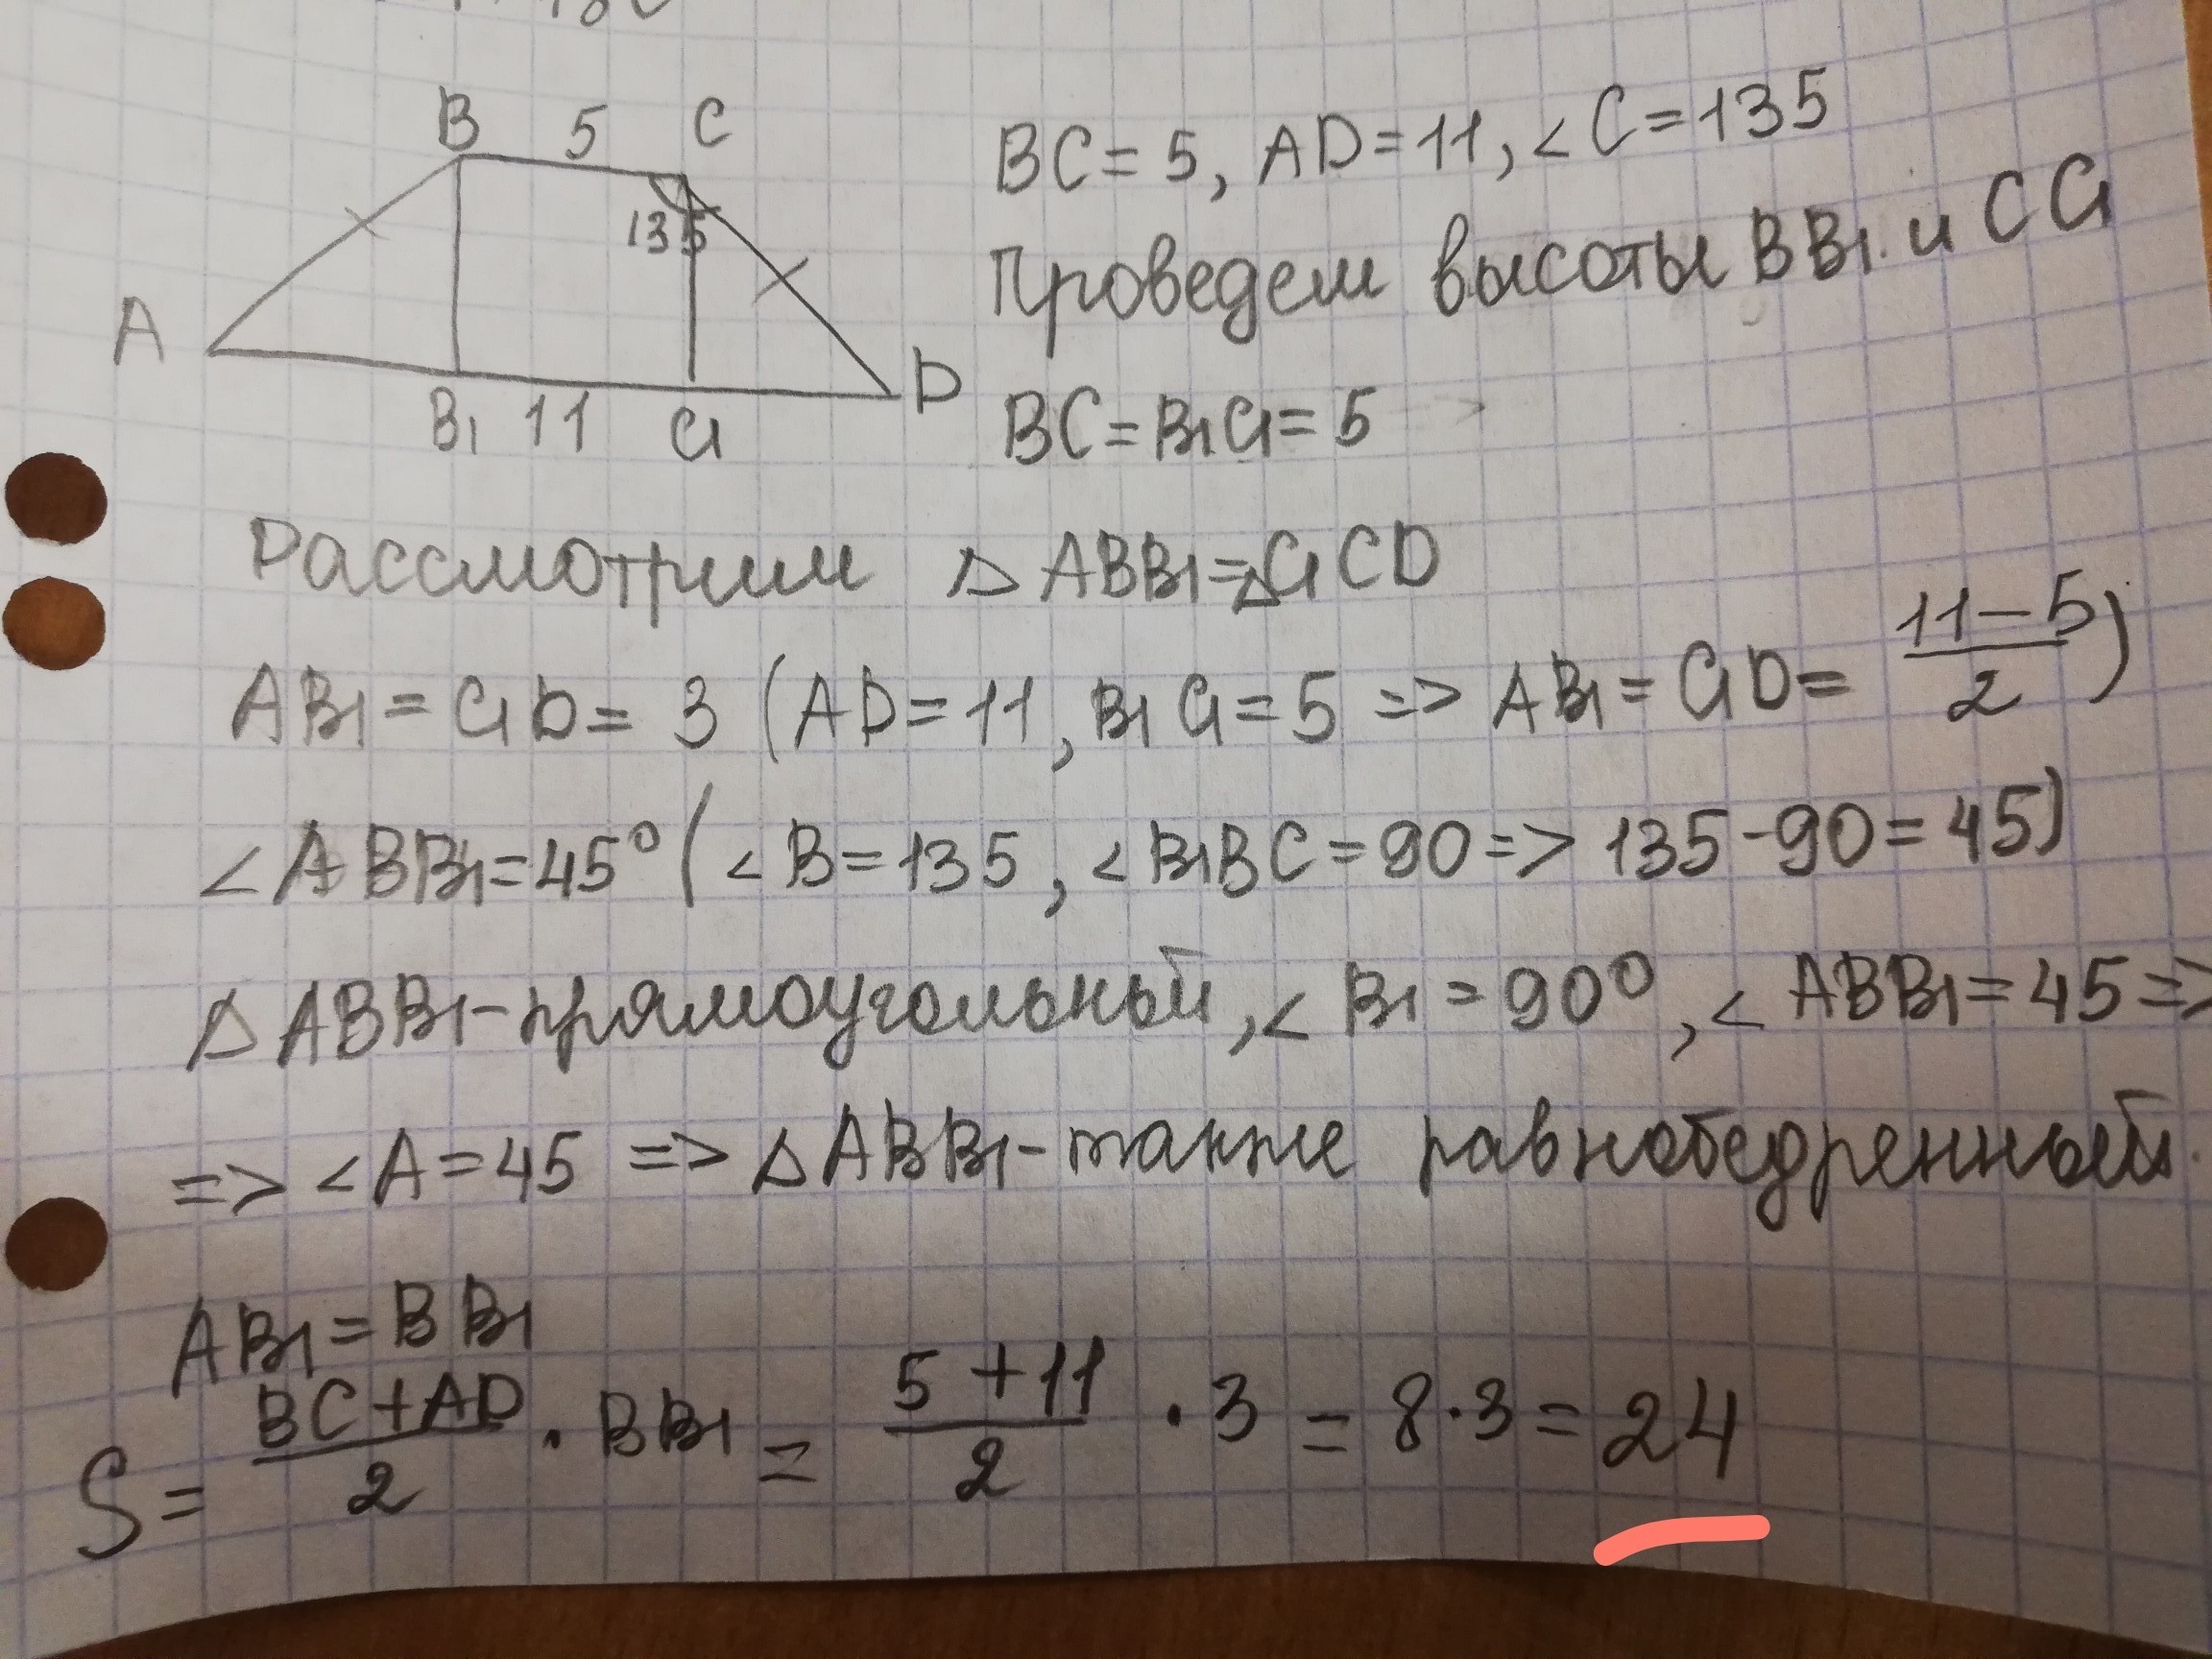 B 5 C
135
A
D
B₁ 11 C₁
BC = 5, AD = 11, ∠C = 135
Проведем высоты BB₁ и CC₁
BC = B₁C₁ = 5
Рассмотрим △ABB₁ = △C₁CD
AB₁ = C₁D = 3 (AD = 11, B₁C₁ = 5 => AB₁ = C₁D = (11 - 5)/2)
∠ABB₁ = 45° (∠B = 135, ∠B₁BC = 90 => 135 - 90 = 45)
△ABB₁ - прямоугольный, ∠B₁ = 90°, ∠ABB₁ = 45 =>
=> ∠A = 45 => △ABB₁ - также равнобедренный.
AB₁ = BB₁
S = (BC + AD)/2 · BB₁ = (5 + 11)/2 · 3 = 8 · 3 = 24